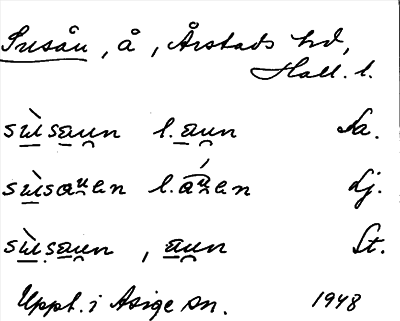 Suseån, å, Årstads hd,
Hall. l.
sùsaun l. aun Sa.
sùsauen l. áuen Lj.
sùsaun, aun St.
Uppt. i Asige sn. 1948